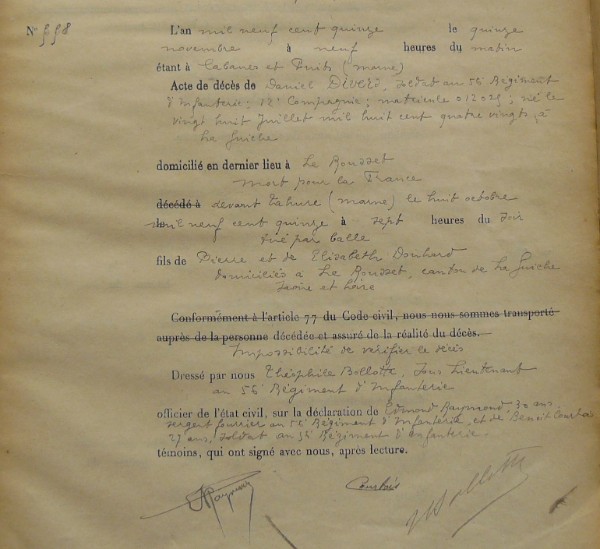 N° 558 L'an mil neuf cent quinze le quinze
novembre à neuf heures du matin
étant à Cabanes et Puits (marne)
Acte de décès de Daniel soldat au 56 Régiment
d'Infanterie; 12e Compagnie; matricule 012025; né le
vingt huit Juillet mil huit cent quatre vingts, à
La Guiche
domicilié en dernier lieu à Le Rousset
mort pour la France
décédé à devant Tahure (marne) le huit octobre
le mil neuf cent quinze à sept heures du soir
tué par balle
fils de Pierre et de Elisabeth
domiciliés à Le Rousset, canton de La Guiche
Saone et Loire
Conformément à l'article 77 du Code civil, nous nous sommes transporté
auprès de la personne décédée et assuré de la réalité du décès.
Impossibilité de vérifier le décès
Dressé par nous Théophile Bollotte, Sous Lieutenant
au 56 Régiment d'Infanterie
officier de l'état civil, sur la déclaration de Edmond Raymond 30 ans,
sergent fourrier au 56 Régiment d'Infanterie, et de Benoit Courtois
27 ans, soldat au 56 Régiment d'Infanterie.
témoins, qui ont signé avec nous, après lecture.
Raymond Courtois Bollotte